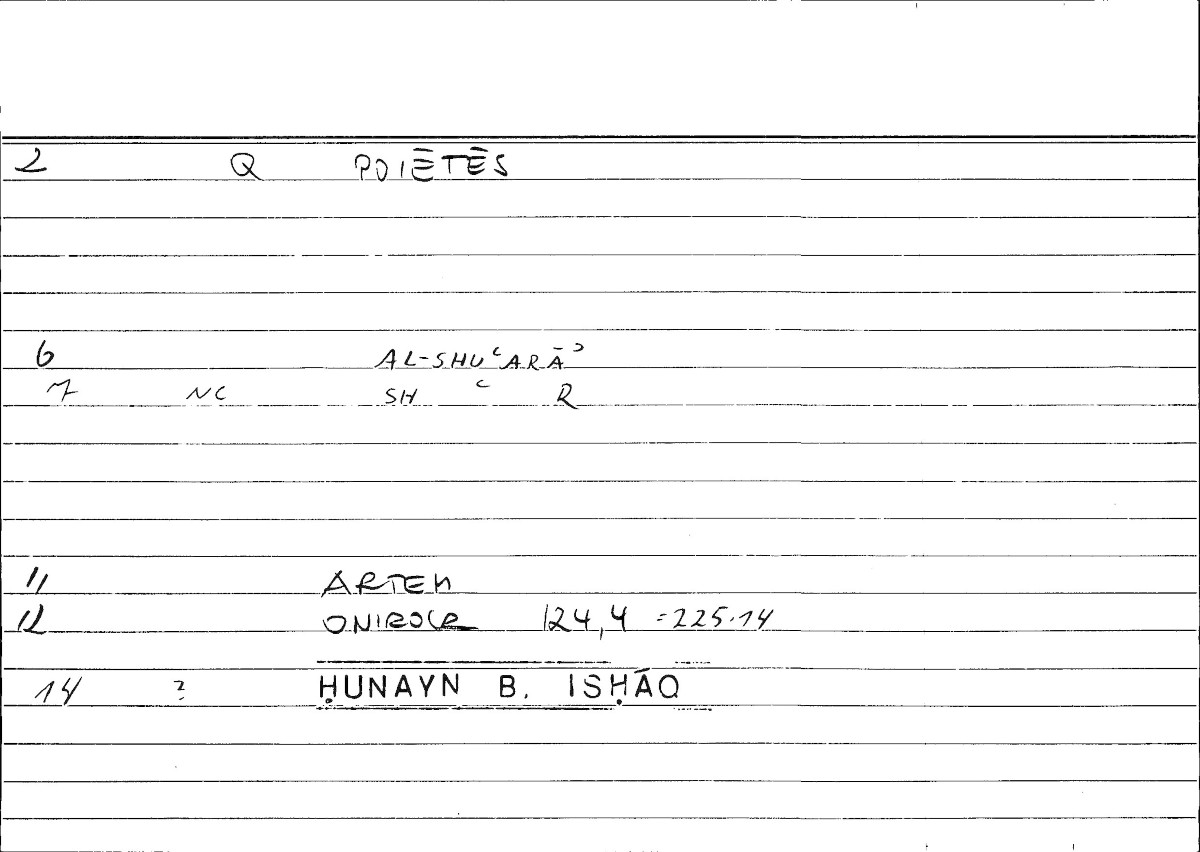 2 Q POIĒTĒS
6 AL-SHUʿARĀʾ
7 NC SH ʿ R
11 ARTEM
12 ONIROCR 124,4 =225.14
14 ? ḤUNAYN B. ISḤĀQ